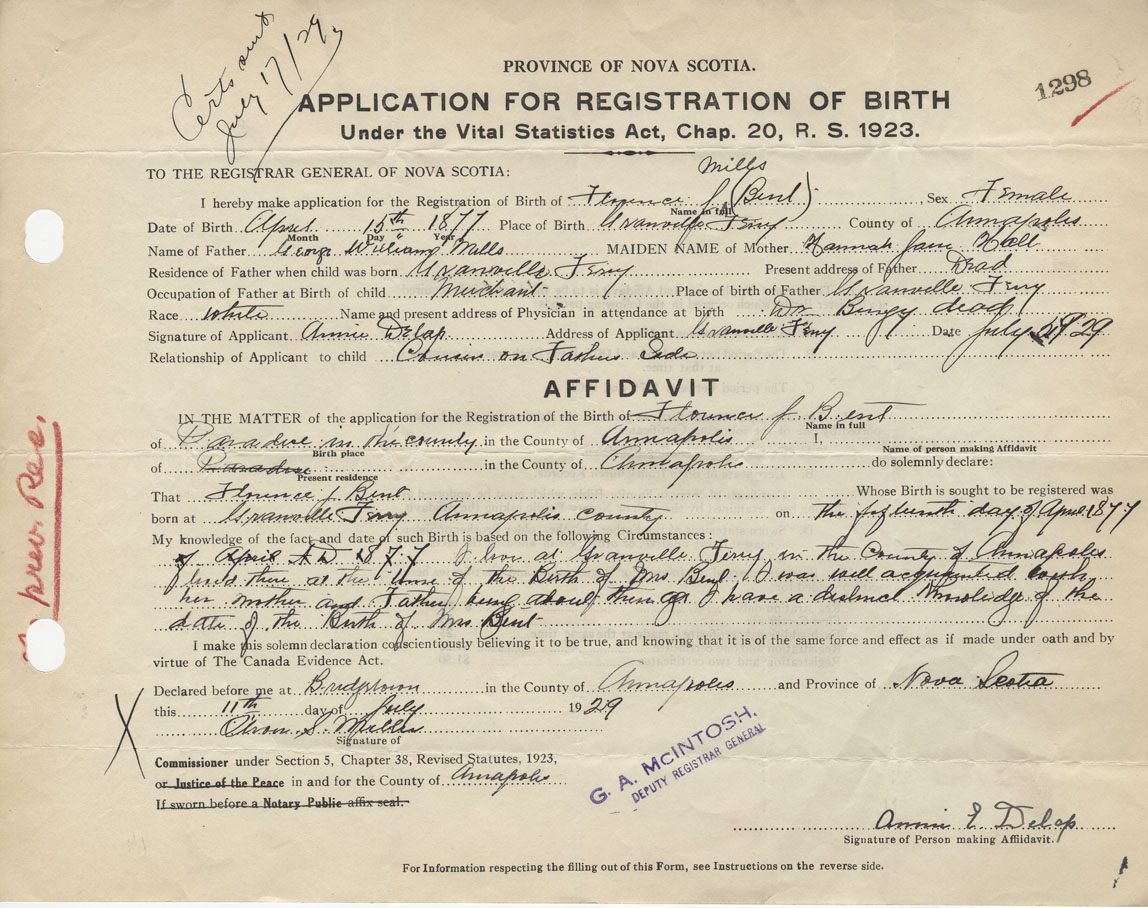 Certs sent
July 17/29
PROVINCE OF NOVA SCOTIA.
1298
APPLICATION FOR REGISTRATION OF BIRTH
Under the Vital Statistics Act, Chap. 20, R. S. 1923.
Mills
TO THE REGISTRAR GENERAL OF NOVA SCOTIA:
I hereby make application for the Registration of Birth of Florence J. (Bent), Sex Female
Name in full
Date of Birth April 15th 1877 Place of Birth Granville Ferry County of Annapolis
Month Day Year
Name of Father George William Mills MAIDEN NAME of Mother Hannah Jane Hall
Residence of Father when child was born Granville Ferry Present address of Father Dead
Occupation of Father at Birth of child Merchant Place of birth of Father Granville Ferry
Race white Name and present address of Physician in attendance at birth Dr dead
Signature of Applicant Annie Delap Address of Applicant Granville Ferry Date July 1929
Relationship of Applicant to child Cousin on Fathers Side
AFFIDAVIT
IN THE MATTER of the application for the Registration of the Birth of Florence J. Bent
Name in full
of Paradise in the county in the County of Annapolis I,
Birth place Name of person making Affidavit
of Paradise in the County of Annapolis do solemnly declare:
Present residence
That Florence J. Bent Whose Birth is sought to be registered was
born at Granville Ferry Annapolis County on the fifteenth day of April 1877
My knowledge of the fact and date of such Birth is based on the following Circumstances:
of April A D 1877 I live at Granville Ferry in the County of Annapolis
lived there at the time of the Birth of Mrs. Bent. I was well acquainted with
her mother and Father being about there as I have a distinct knowledge of the
date of the Birth of Mrs. Bent
I make this solemn declaration conscientiously believing it to be true, and knowing that it is of the same force and effect as if made under oath and by
virtue of The Canada Evidence Act.
Declared before me at Bridgetown in the County of Annapolis and Province of Nova Scotia
this 11th day of July 1929
S. Miller
Signature of
Commissioner under Section 5, Chapter 38, Revised Statutes, 1923,
or Justice of the Peace in and for the County of Annapolis
If sworn before a Notary Public affix seal.
G. A. McINTOSH.
DEPUTY REGISTRAR GENERAL
X
Annie E Delap
Signature of Person making Affidavit.
For Information respecting the filling out of this Form, see Instructions on the reverse side.